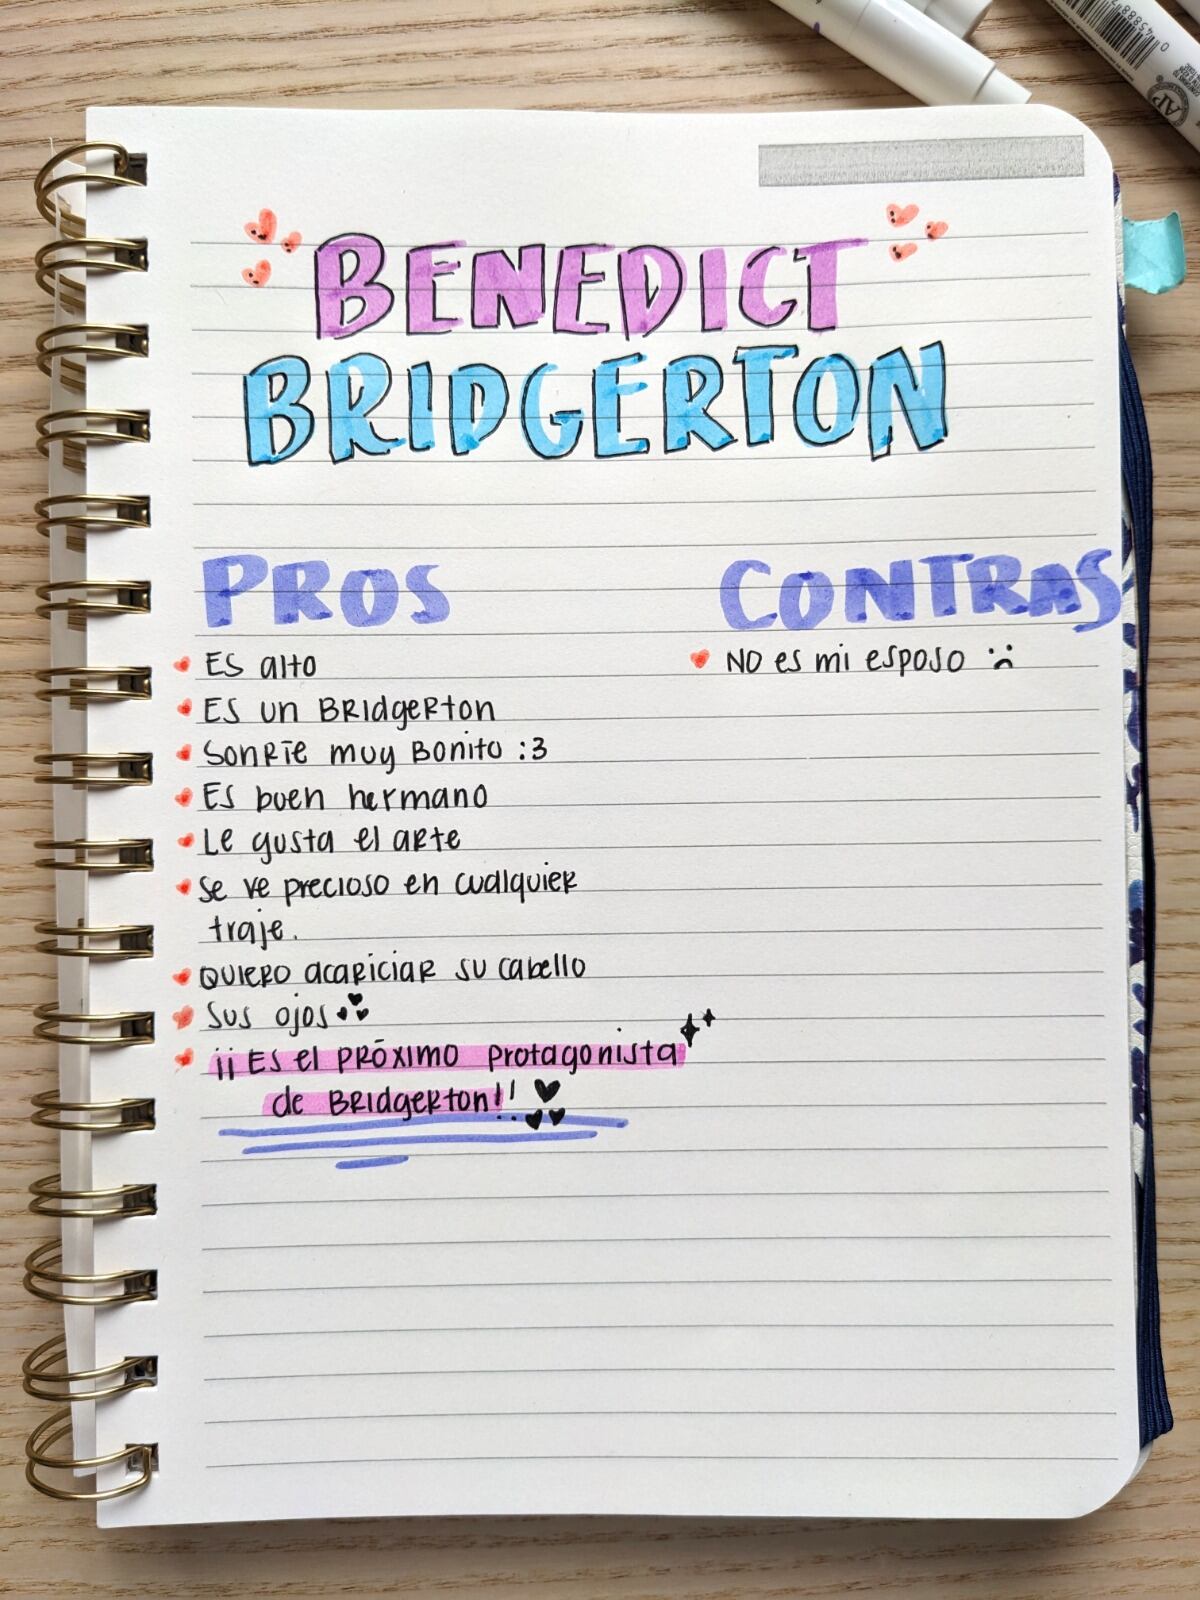 BENEDICT
BRIDGERTON
PROS
Es alto
Es un Bridgerton
Sonríe muy Bonito :3
Es buen hermano
Le gusta el arte
Se ve precioso en cualquier
traje.
Quiero acariciar su cabello
Sus ojos
¡¡Es el próximo protagonista
de Bridgerton!!
CONTRAS
NO es mi esposo :(